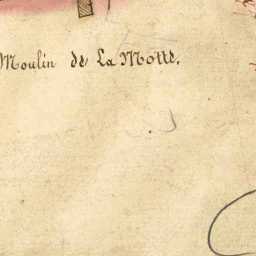 Moulin de La Motte.